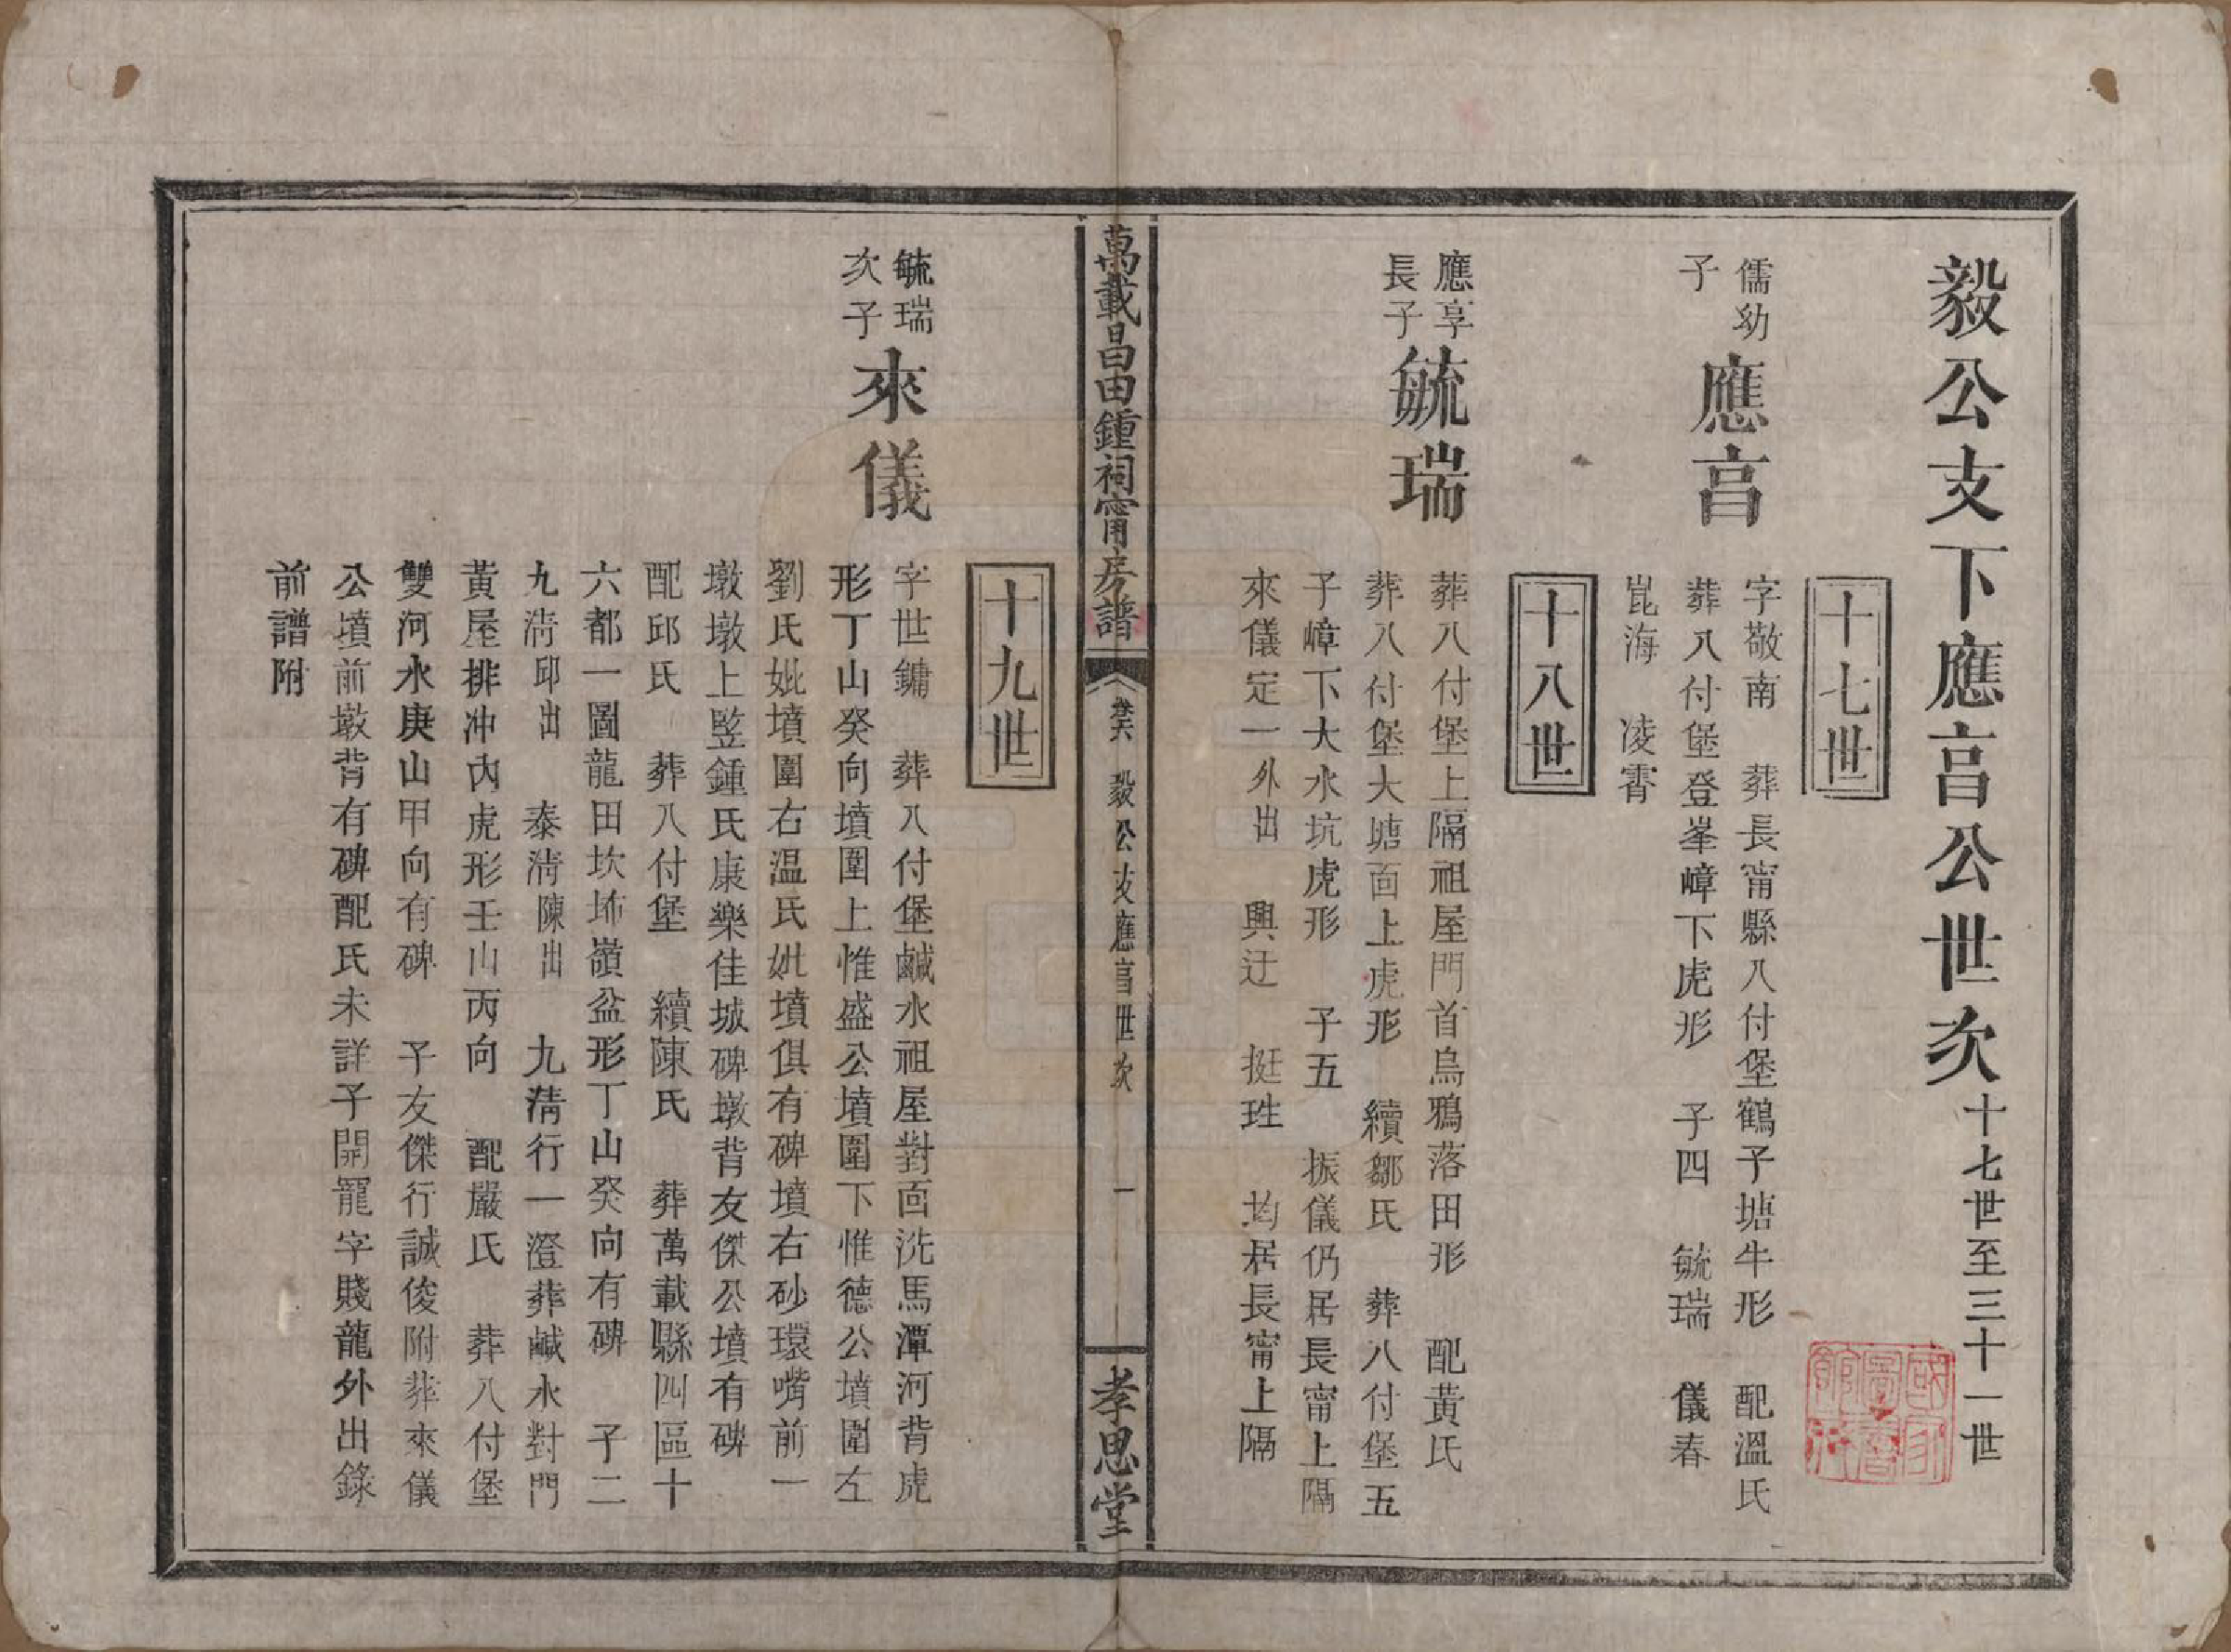 毅公支下應亯公世次十七世至三十一世
十七世
儒幼
子
應亯
字敬南　葬長甯縣八付堡鶴子塘牛形　配溫氏
葬八付堡登峯嶂下虎形　子四　毓瑞　儀春
崑海　凌霄
十八世
應享
長子
毓瑞
葬八付堡上隔祖屋門首烏鴉落田形　配黃氏
葬八付堡大塘面上虎形　續鄒氏　葬八付堡五
子嶂下大水坑虎形　子五　振儀仍居長甯上隔
來儀定一外出　興迂　挺珄　均居長甯上隔
萬載昌田鍾祠甯房譜
卷六　毅公支應亯世次　一
孝思堂
十九世
毓瑞
次子
來儀
字世鏞　葬八付堡鹹水祖屋對面洗馬潭河背虎
形丁山癸向墳圍上惟盛公墳圍下惟德公墳圍左
劉氏妣墳圍右溫氏妣墳俱有碑墳右砂環嘴前一
墩墩上竪鍾氏康樂佳城碑墩背友傑公墳有碑
配邱氏　葬八付堡　續陳氏　葬萬載縣四區十
六都一圖龍田坎垇嶺盆形丁山癸向有碑　子二
九淸邱出　泰淸陳出　九淸行一澄葬鹹水對門
黃屋排冲內虎形壬山丙向　配嚴氏　葬八付堡
雙河水庚山甲向有碑　子友傑行誠俊附葬來儀
公墳前墩背有碑配氏未詳子開寵字賤龍外出錄
前譜附
國家圖書館藏